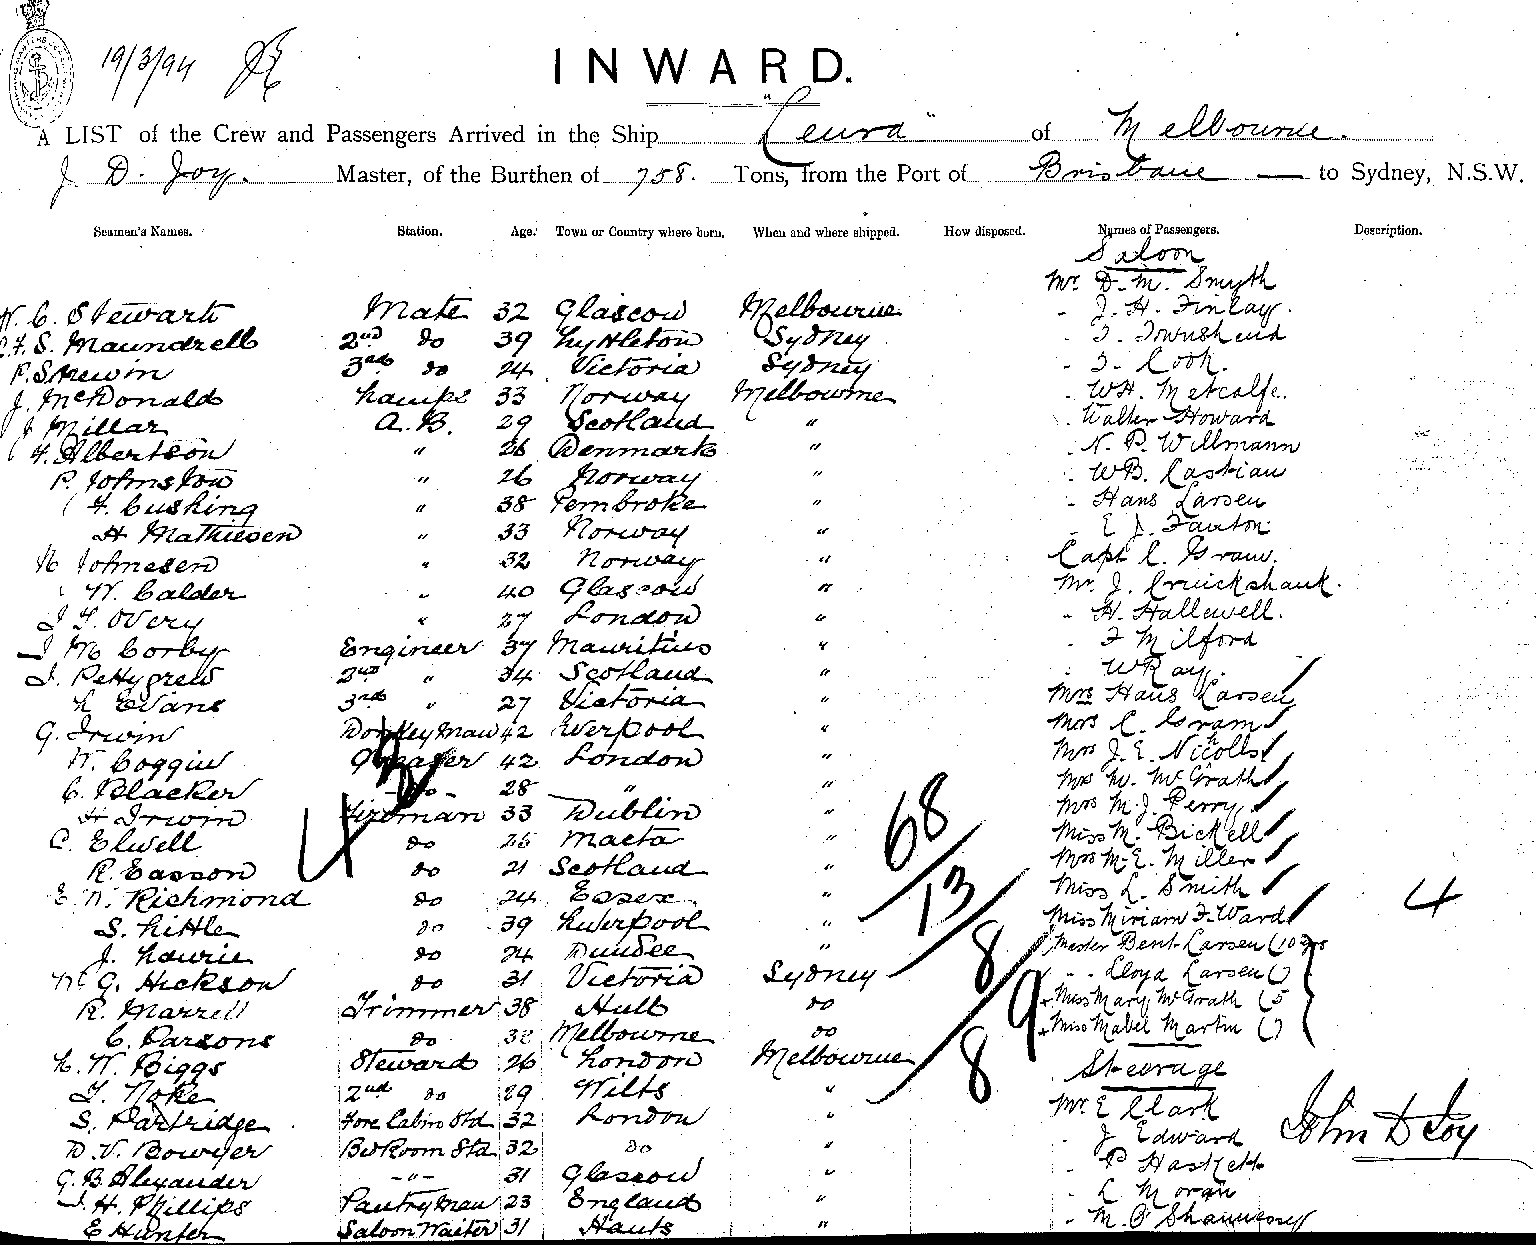 19/3/94
INWARD.
A LIST of the Crew and Passengers Arrived in the Ship "Leura" of Melbourne.
J. D. Joy. Master, of the Burthen of 758. Tons, from the Port of Brisbane — to Sydney, N.S.W.
Seamen's Names. Station. Age. Town or Country where born. When and where shipped. How disposed. Names of Passengers. Description.
Saloon
Mr. D. M. Smyth
W. C. Stewart Mate 32 Glascow Melbourne " J. H. Finlay.
S. Maundrell 2nd do 39 Lyttleton Sydney " T. Townshend
P. Strewin 3rd do 24 Victoria Sydney " T. Cook.
J. McDonald Lamps 33 Norway Melbourne " W.H. Metcalfe.
J. Millar A.B. 29 Scotland " " Walter Howard
H. Albertson " 26 Denmark " " N. P. Willmann
P. Johnston " 26 Norway " " W.B. Castian
H. Cushing " 38 Pembroke " " Hans Larsen
H. Mathiesen " 33 Norway " " E. J. Fanton
N. Johnesen " 32 Norway " Capt C. Gram.
W. Calder " 40 Glascow " Mr. J. Cruickshank.
J. F. Overy " 27 London " " H. Hallewell.
J. M. Corby Engineer 37 Mauritius " " F. Milford
J. Pettygrew 2nd " 34 Scotland " " W Ray.
L Evans 3rd " 27 Victoria " Mrs Hans Larsen
G. Irwin Donkey Man 42 Liverpool " Mrs C. Gram
W. Coggin Greaser 42 London " Mrs J. E. Nicolls
C. Blacker - do - 28 " " Mrs M. McGrath
H Irwin Fireman 33 Dublin " Mrs M. J. Perry
C. Elwell do 25 Malta " Miss M. Bickell
R. Easson do 21 Scotland " Mrs M. E. Miller
E. W. Richmond do 24 Essex " Miss L. Smith
S. Little do 39 Liverpool " Miss Miriam F. Ward
J. Lawrie do 24 Dundee " Master Bent Larsen (10 yrs
G. Hickson do 31 Victoria Sydney " " Lloyd Larsen ( )
R. Marrell Trimmer 38 Hull do Miss Mary McGrath (5
C. Parsons do 32 Melbourne do Miss Mabel Martin ( )
68
13
8
9
8
4
4
L. W. Biggs Steward 26 London Melbourne Steerage
T. Noke 2nd do 29 Wilts " Mr. E Clark
S. Partridge Fore Cabin Std 32 London " " J Edward
D. V. Bowyer Bed Room Std 32 do " " P Hastett
G. B. Alexander -"- 31 Glascow " " L Moran
J. H. Phillips Pantry Man 23 England " " M. O'Shannessy
E Hunter Saloon Waiter 31 Hants "
John D Joy